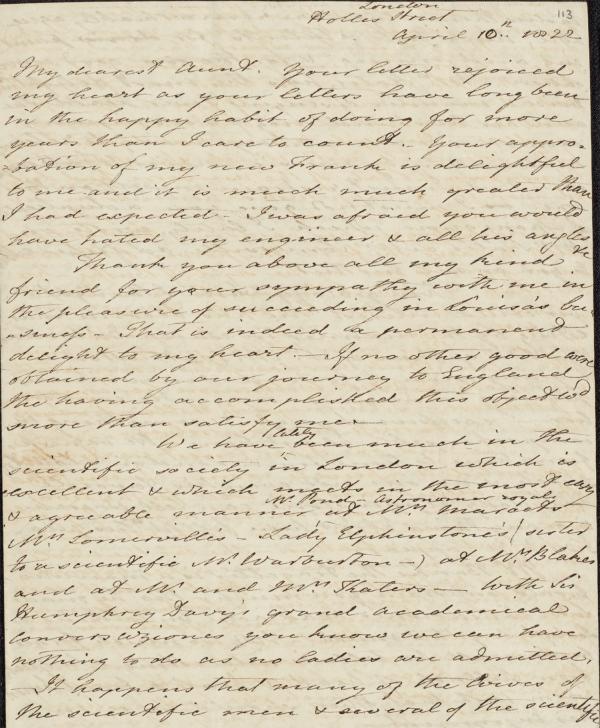 London
113
Holles Street
April 10th.. 1822
My dearest Aunt. Your letter rejoiced
my heart as your letters have long been
in the happy habit of doing for more
years than I care to count. Your appro-
-bation of my new Frank is delightful
to me and it is much much greater than
I had expected - I was afraid you would
have hated my engineer & all his angles &c
Thank you above all my kind
friend for your sympathy with me in
the pleasure of succeeding in Louisa's bu-
-siness - That is indeed a permanent
delight to my heart. - If no other good were
obtained by our journey to England
the having accomplished this object wd
more than satisfy me.
lately
We have been much in the
scientific society in London which is
excellent & which meets in the most easy
Mr. Pond - Astronomer royal
& agreeable manner at Mrs Marcets
Mrs Somerville's - Lady Elphinstone's (sister
to a scientific Mr. Warburton -) at Mrs Blakes
and at Mr. and Mrs Katers - With Sir
Humphrey Davy's grand academical
conversaziones you know we can have
nothing to do as no ladies are admitted.
- It happens that many of the wives of
the scientific men & several of the scientific